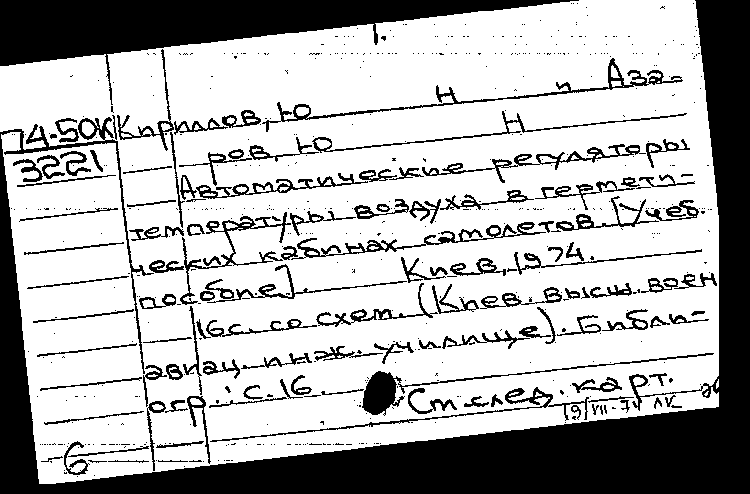 1.
74-50К Кириллов, Ю Н и Аза-
3221 ров, Ю Н
Автоматические регуляторы
температуры воздуха в гермети-
ческих кабинах самолетов. [Учеб.
пособие]. Киев, 1974.
16с. со схем. (Киев. высш. воен
авиац. инж. училище). Библи-
огр.: с. 16.
См. след. карт.
19/VII-74 ЛК
6